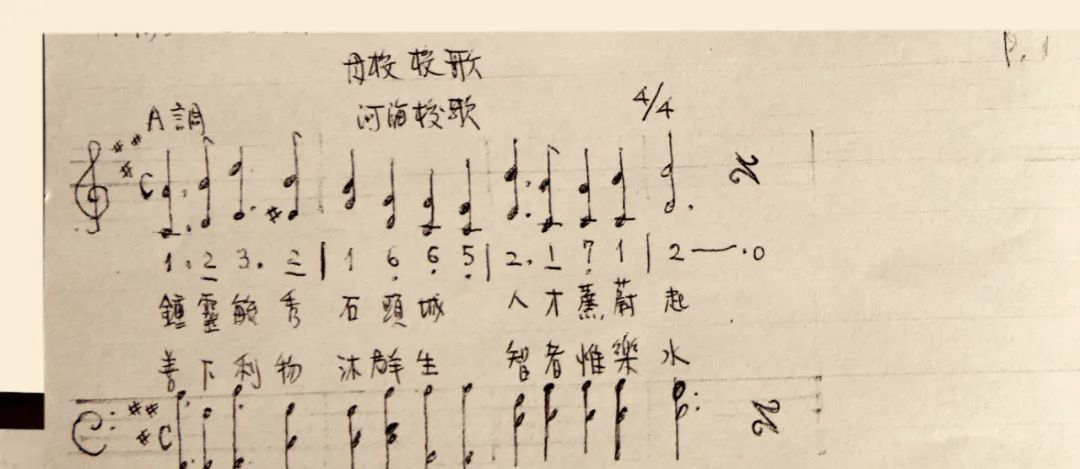 母校校歌
P. 1
A調
河海校歌
4/4
1. 2 3. 2 | 1 6 6 5 | 2. 1 7 1 | 2 — . 0
鍾靈毓秀 石頭城 人才薰蔚起
善下利物 沐群生 智者惟樂水